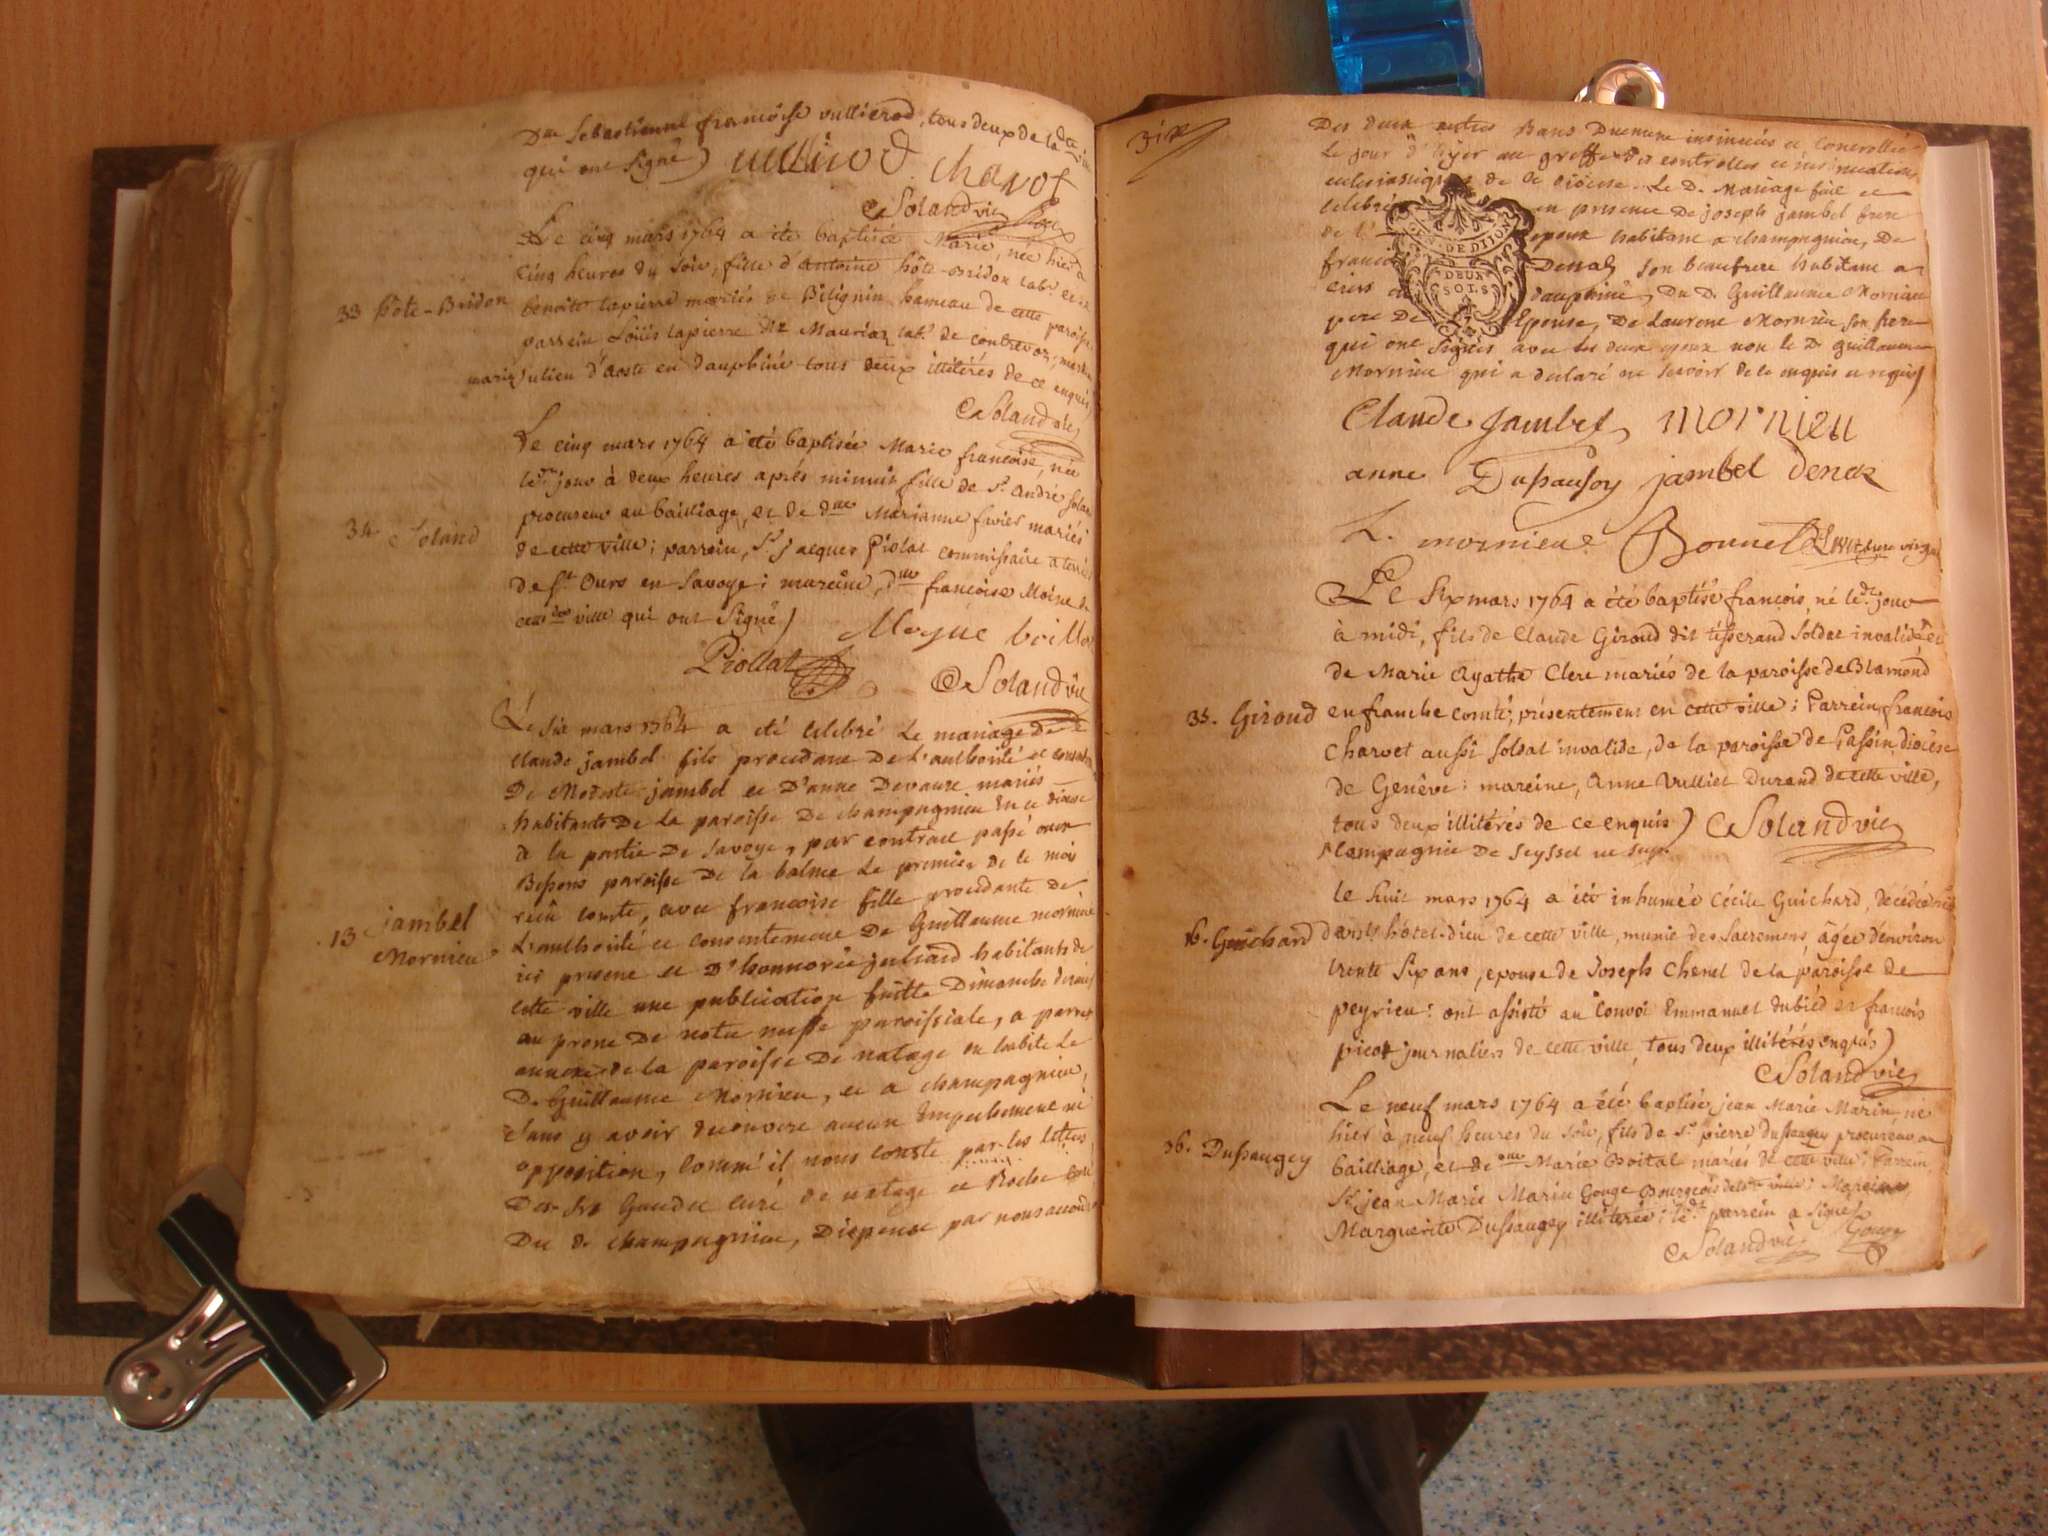 Dlle Sebastienne francoise vullierod, tous deux de la dte
qui ont signé) vulliod. charof
Soland vic
Le cinq mars 1764 a été baptisée Marie, née hier à
cinq heures du soir, fille d'antoine hôte-Bridon labr et de
33 hôte-Bridon
benoite lapierre mariés de Bilignin hameau de cette paroisse
parrein Loüis lapierre de labr de contrevoz; mar
julien d'aoste en dauphiné tous deux illitérés de ce enquis)
Solandvic
Le cinq mars 1764 a été baptisée Marie francoise, née
ledt jour à deux heures aprés minuit fille de sr andré Solan
34 Soland
procureur au bailliage, et de dlle Marianne mariés
de cette ville; parrein, Sr jacques Piolat commissaire a terriers
de St Ours en Savoye; mareine, dlle françoise Moine de
cette ville qui ont signé)
Moyne
Piollat
Solandvic
Le six mars 1764 a eté celebré le mariage de
claude jambel fils procedant de l'authorité et
De Modeste jambel et D'anne Devaux mariés
habitants De la paroisse De champagnieu en ce diocese
à la partie De Savoye, par contract passé
paroisse De la balme le premier de ce mois
13 jambel
Mornieu
reçu comte, avec francoise fille procedante de
L'authorité et consentement De Guillaume mornieu
ici present et D'honnorée juliard habitants de
cette ville une publication faitte Dimanche dernier
au prone De notre messe paroissiale, a
annexe de la paroisse De natage ou habite le
D. Guillaume Mornieu, et a champagnieu,
sans y avoir decouvert aucun Empechement ni
opposition, comm' il nous conste par les lettres
Des Srs curé de natage et Roche
Du dt champagnieu, Dispense par nous accordée
Des deux autres Bans Duement insinuées et Controllée
Le jour d'hyer au greffe des controlles et insinuations
de ce diocese. Le D. Mariage fait et
celebré en presence De joseph jambel frere
de l' epoux habitant a champagnieu, De
francoi son beaufrere habitant a
GEN. DE DIJON
DEUX
SOLS
dauphiné, Du D. Guillaume Mornieu
pere De Epouse, De Laurent Mornieu son frere
qui ont signés avec les deux epoux non le D. guillaume
Mornieu qui a declaré ne scavoir de ce enquis et requis)
Claude Jambel mornieu
anne jambel
L. mornieu Bonnet
Le Six mars 1764 a été baptisé francois, né ledt jour
à midi, fils de Claude Giroud dit tisserand soldat invalide et
de Marie Agathe Clere mariés de la paroisse de Blamond
35. Giroud
en franche comté; présentement en cette ville; Parrein francois
Charvet aussi soldat invalide, de la paroisse de Passin diocèse
de Genève; mareine, Anne Vulliet Durand de cette ville,
tous deux illitérés de ce enquis) Solandvic
compagnie De Seyssel
le huit mars 1764 a été inhumée Cécile Guichard, décédée hier
16. Guichard
dans l'hôtel-dieu de cette ville, munie des Sacremens, âgée d'environ
trente six ans, epouse de Joseph Chenet de la paroisse de
peyrieu: ont assisté au convoi Emmanuel dubied et francois
picot journaliers de cette ville, tous deux illitérés enquis)
Solandvic
Le neuf mars 1764 a été baptisé jean Marie Marin né
hier à neuf heures du soir, fils de Sr pierre dussaugey procureur au
36. Dussaugey
bailliage, et de dlle Marie mariés de cette ville; Parrein,
Sr jean Marie Marin Gouge Bourgeois de cette ville; Mareine
Marguerite Dussaugey illitérée; ledt parrein a signé)
Solandvic Gouge